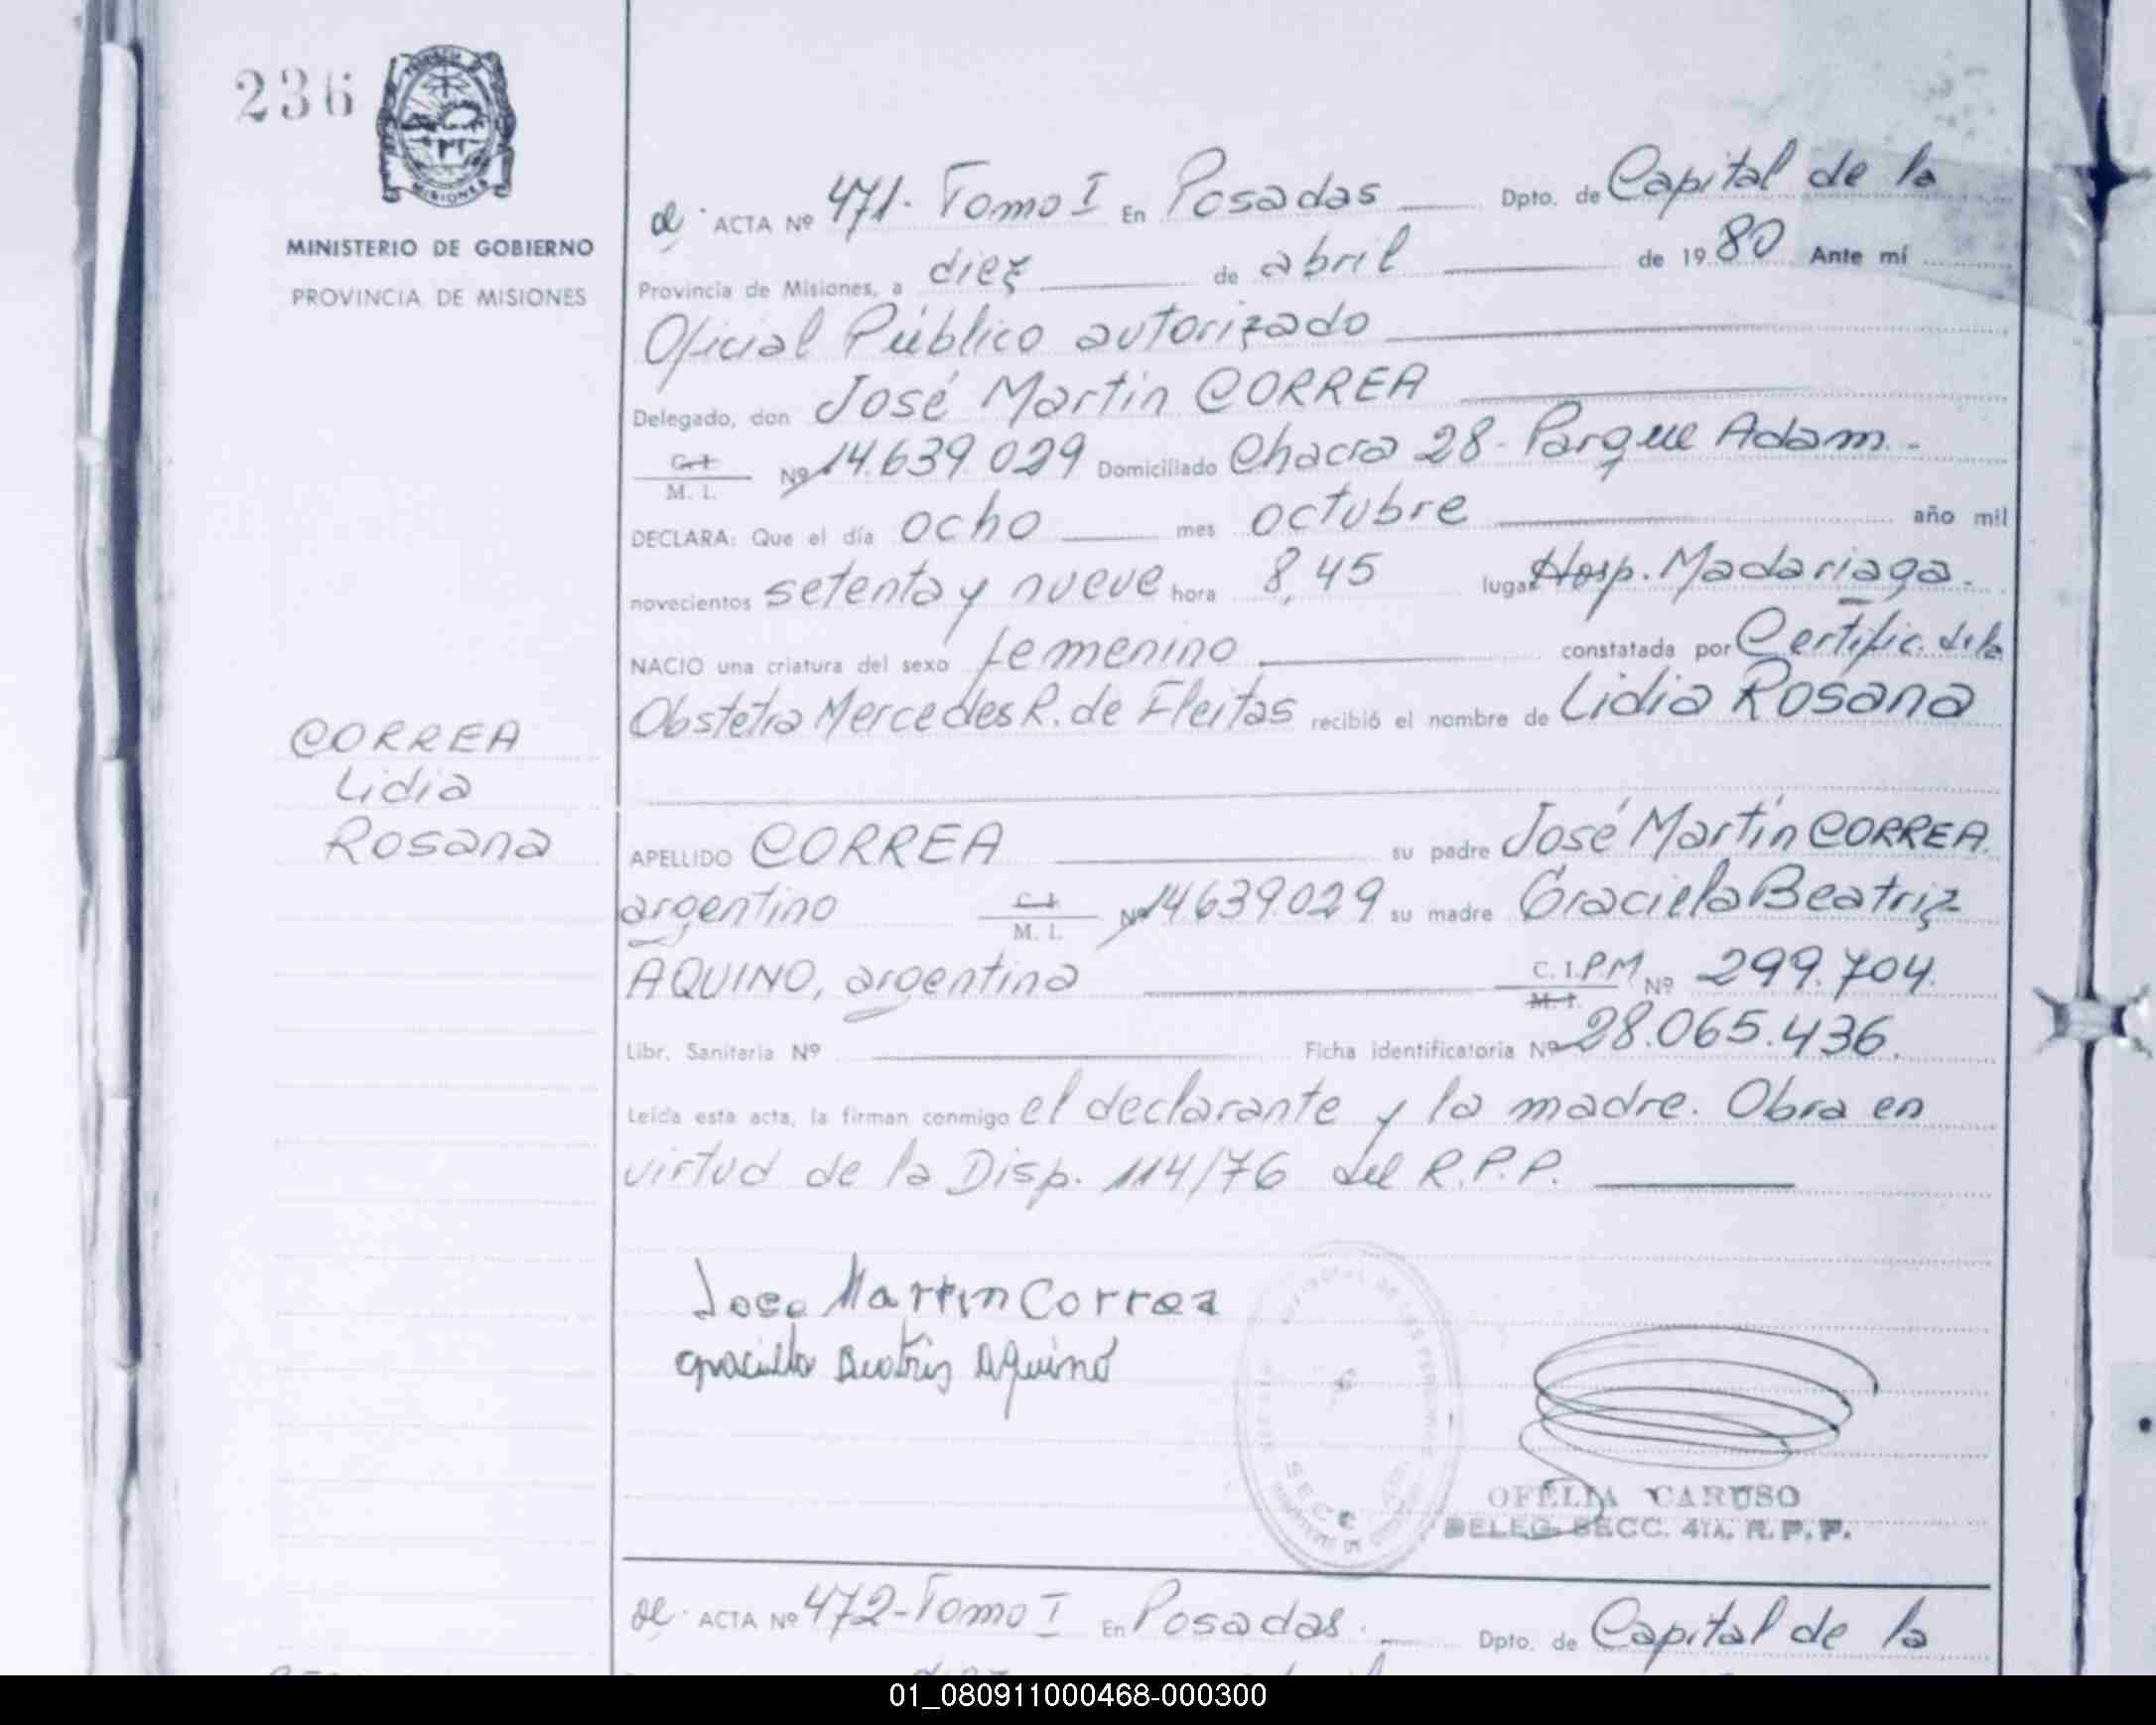 236
MISIONES
MINISTERIO DE GOBIERNO
PROVINCIA DE MISIONES
ACTA Nº 471- Tomo I En Posadas Dpto. de Capital de la
Provincia de Misiones, a diez de abril de 1980 Ante mí
Oficial Público autorizado
Delegado, don José Martin CORREA
C.I. M. I. Nº 14.639.029 Domiciliado Chacra 28- Parque Adam.-
DECLARA: Que el día ocho mes octubre año mil
novecientos setenta y nueve hora 8,45 lugar Hosp. Madariaga.-
NACIO una criatura del sexo femenino constatada por Certific. de la
Obstetra Mercedes R. de Fleitas recibió el nombre de Lidia Rosana
CORREA
Lidia
Rosana
APELLIDO CORREA su padre José Martín CORREA.
argentino C.I. M. I. Nº 14639.029 su madre Graciela Beatriz
AQUINO, argentina C.I.PM M.I. Nº 299.704.
Libr. Sanitaria Nº Ficha identificatoria Nº 28.065.436.
Leída esta acta, la firman conmigo el declarante y la madre. Obra en
virtud de la Disp. 114/76 del R.P.P.
Jose Martin Correa
Graciela Beatris Aquino
OFELIA CARUSO
DELEG. SECC. 4TA. R.P.P.
ACTA Nº 472-Tomo I En Posadas.- Dpto. de Capital de la
01_080911000468-000300